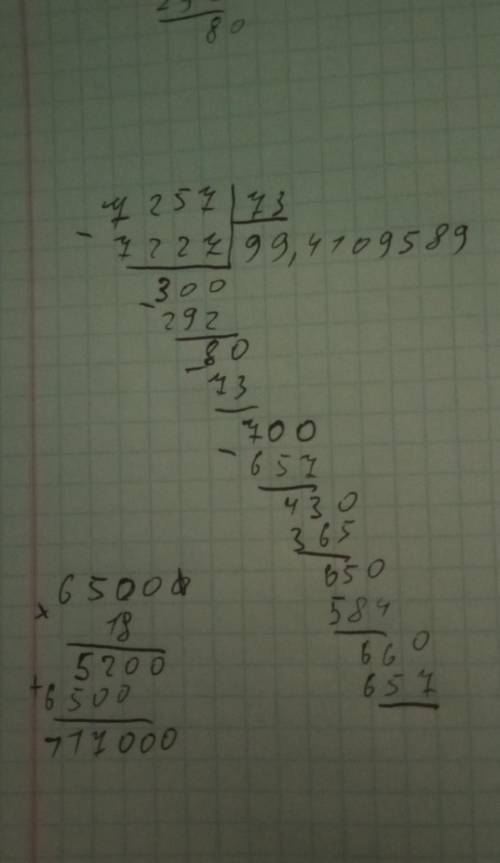 80
7257 73
- 7227 99,4109589
300
- 292
80
- 73
700
- 657
430
365
650
584
660
657
65000
× 18
5200
+ 6500
117000